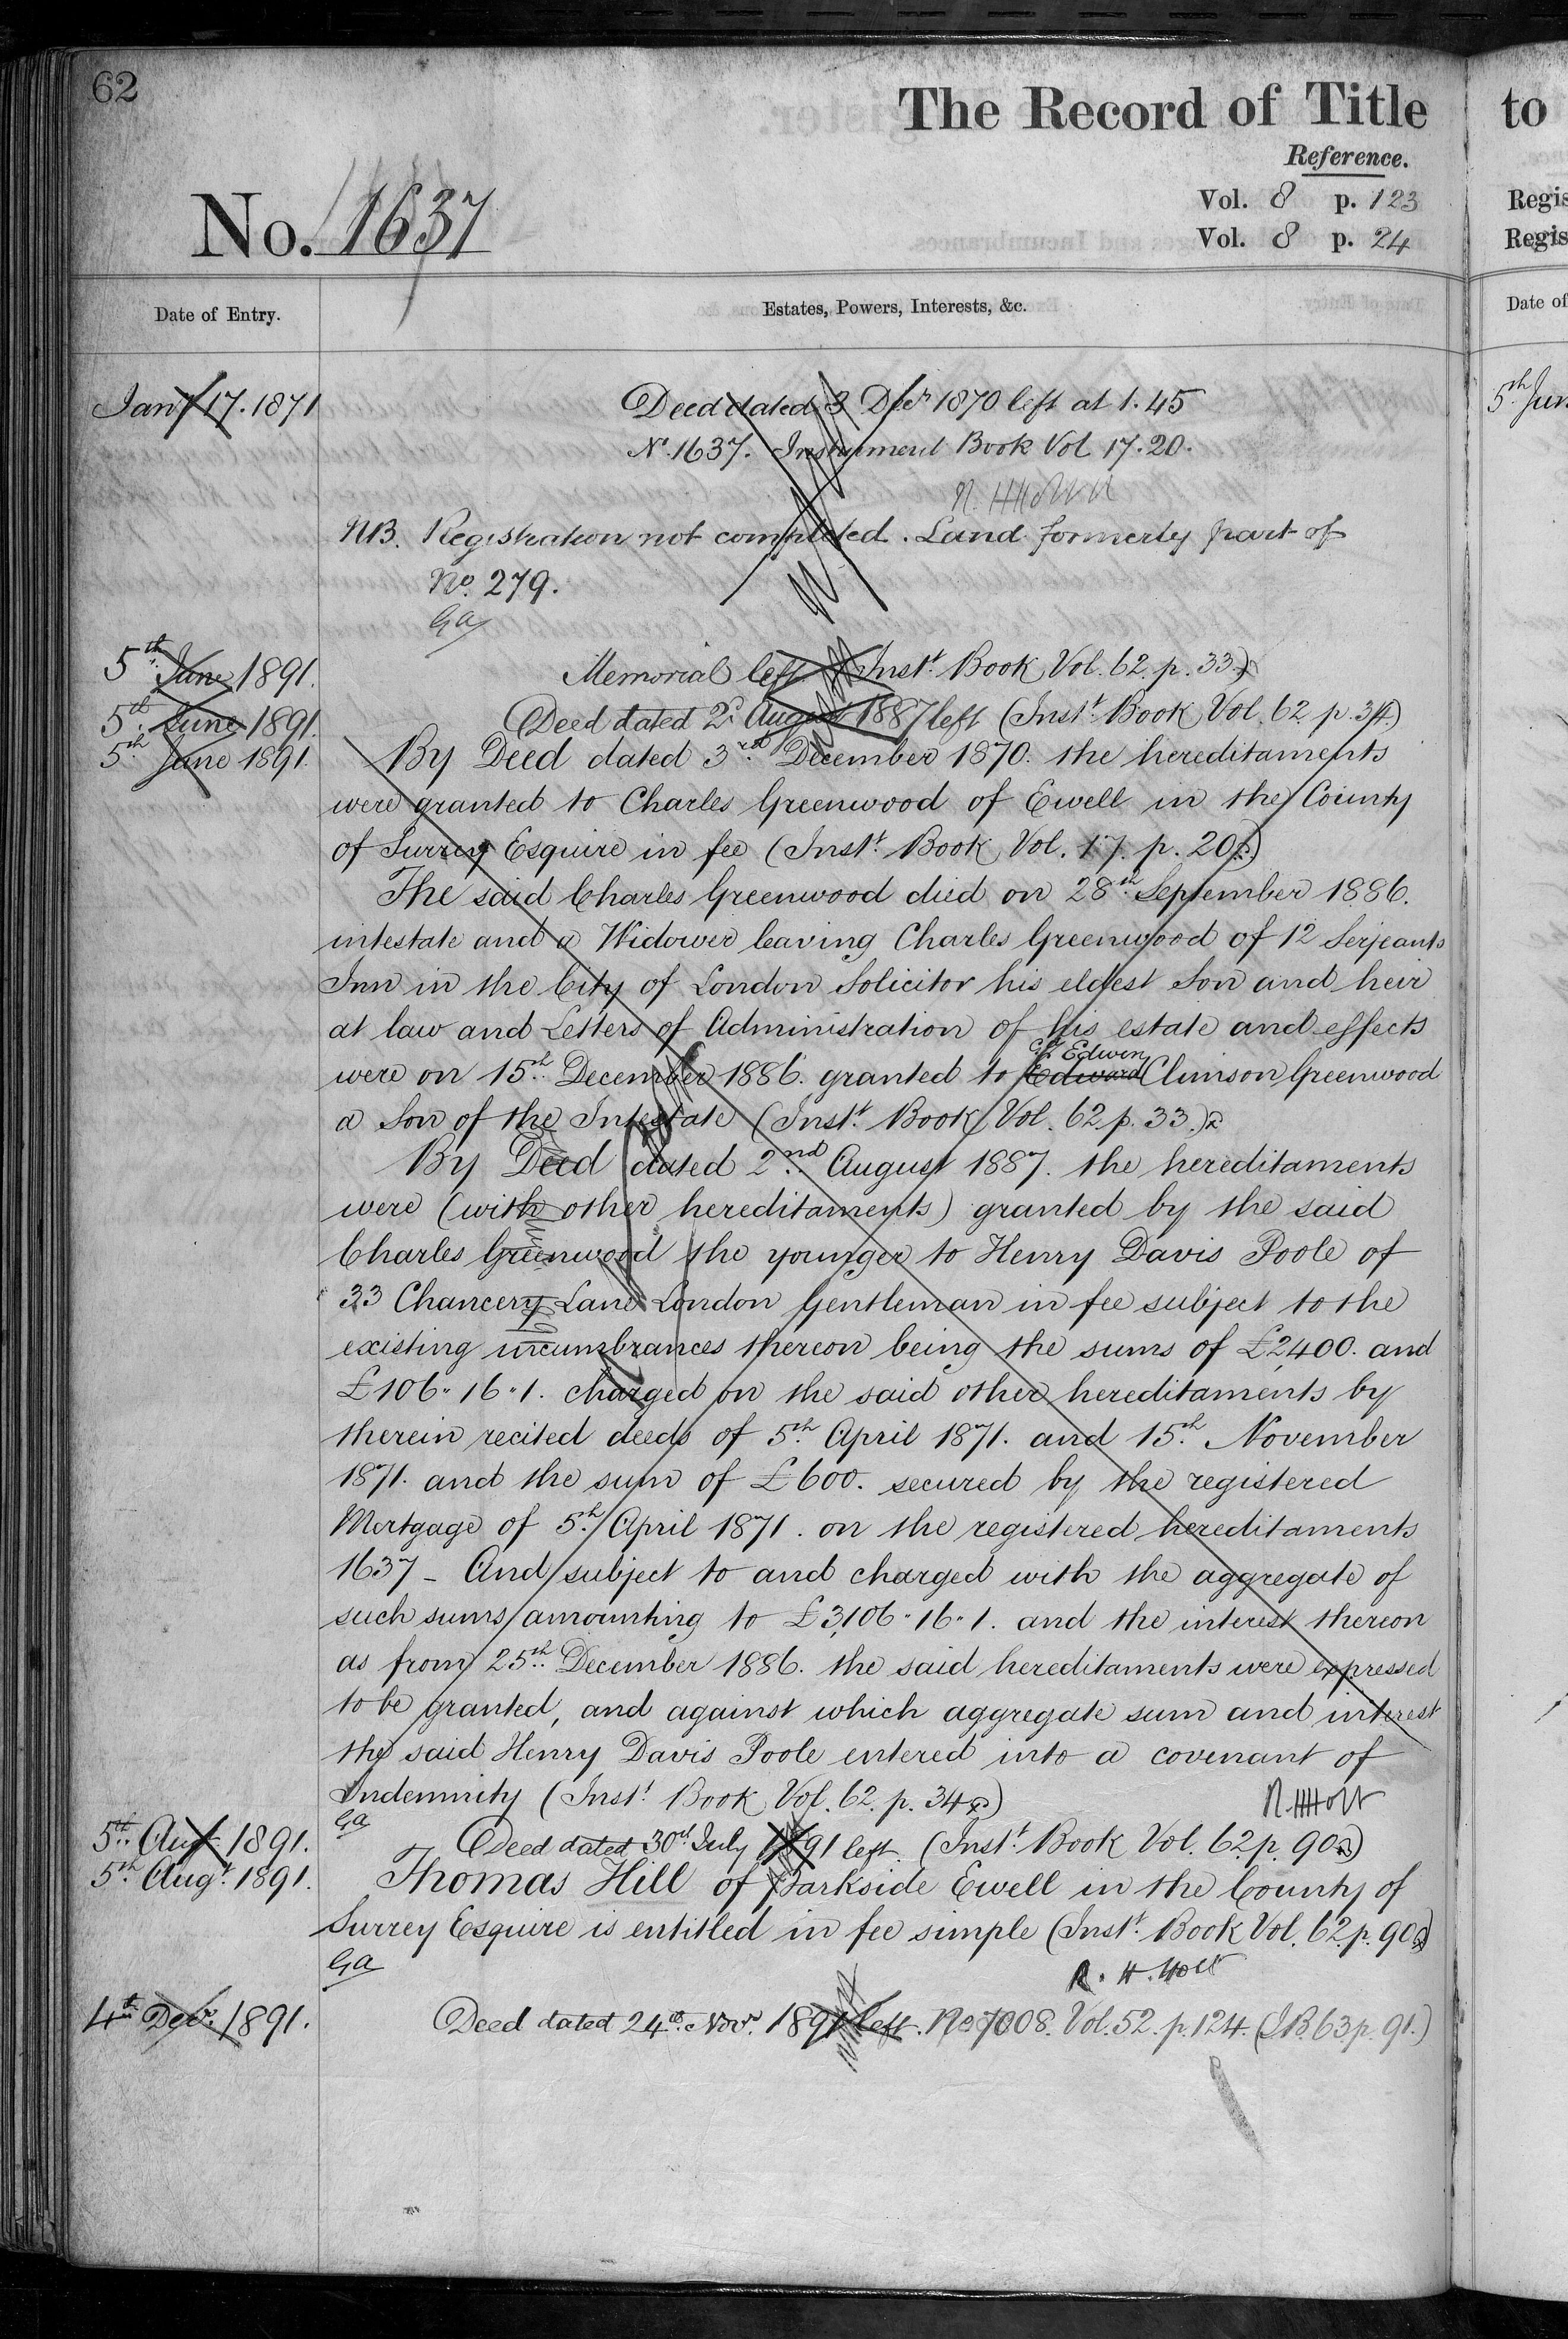 62
The Record of Title
to
Reference.
Vol. 8 p. 123
Vol. 8 p. 24
No. 1637
Regis
Regis
Date of Entry.
Estates, Powers, Interests, &c.
Date of
Jany 17. 1871
Deed dated 3 Decr 1870 left at 1.45
5th Jun
No. 1637. Instrument Book Vol 17. 20.
NB. Registration not completed. Land formerly part of
No. 279.
Ga
5th June 1891.
Memorial left (Instt Book Vol. 62. p. 33.)
5th June 1891.
Deed dated 2d August 1887 left (Instt Book Vol. 62 p. 34.)
5th June 1891.
By Deed dated 3rd December 1870. the hereditaments
were granted to Charles Greenwood of Ewell in the County
of Surrey Esquire in fee (Instt Book Vol. 17. p. 20.)
The said Charles Greenwood died on 28th September 1886.
intestate and a Widower leaving Charles Greenwood of 12 Serjeants
Inn in the City of London Solicitor his eldest Son and heir
at law and Letters of Administration of his estate and effects
Edwin
were on 15th December 1886. granted to Edward Climson Greenwood
a Son of the Intestate (Instt Book Vol. 62 p. 33.)
By Deed dated 2nd August 1887. the hereditaments
were (with other hereditaments) granted by the said
Charles Greenwood the younger to Henry Davis Poole of
33 Chancery Lane London Gentleman in fee subject to the
existing incumbrances thereon being the sums of £2,400. and
£106"16"1. charged on the said other hereditaments by
therein recited deeds of 5th April 1871. and 15th November
1871. and the sum of £600. secured by the registered
Mortgage of 5th April 1871. on the registered hereditaments
1637 - And subject to and charged with the aggregate of
such sums amounting to £3,106"16"1. and the interest thereon
as from 25th December 1886. the said hereditaments were expressed
to be granted, and against which aggregate sum and interest
the said Henry Davis Poole entered into a covenant of
Indemnity (Instt Book Vol. 62. p. 34.)
R. H Holt
Ga
5th Augt 1891.
Deed dated 30th July 1891 left. (Instt Book Vol. 62 p. 90.)
5th Augt 1891.
Thomas Hill of Parkside Ewell in the County of
Surrey Esquire is entitled in fee simple (Instt Book Vol. 62. p. 90.)
Ga
R. H. Holt
4th Decr. 1891.
Deed dated 24th Novr. 1891 left. No 7008. Vol. 52. p. 124. (I.B. 63. p. 91.)